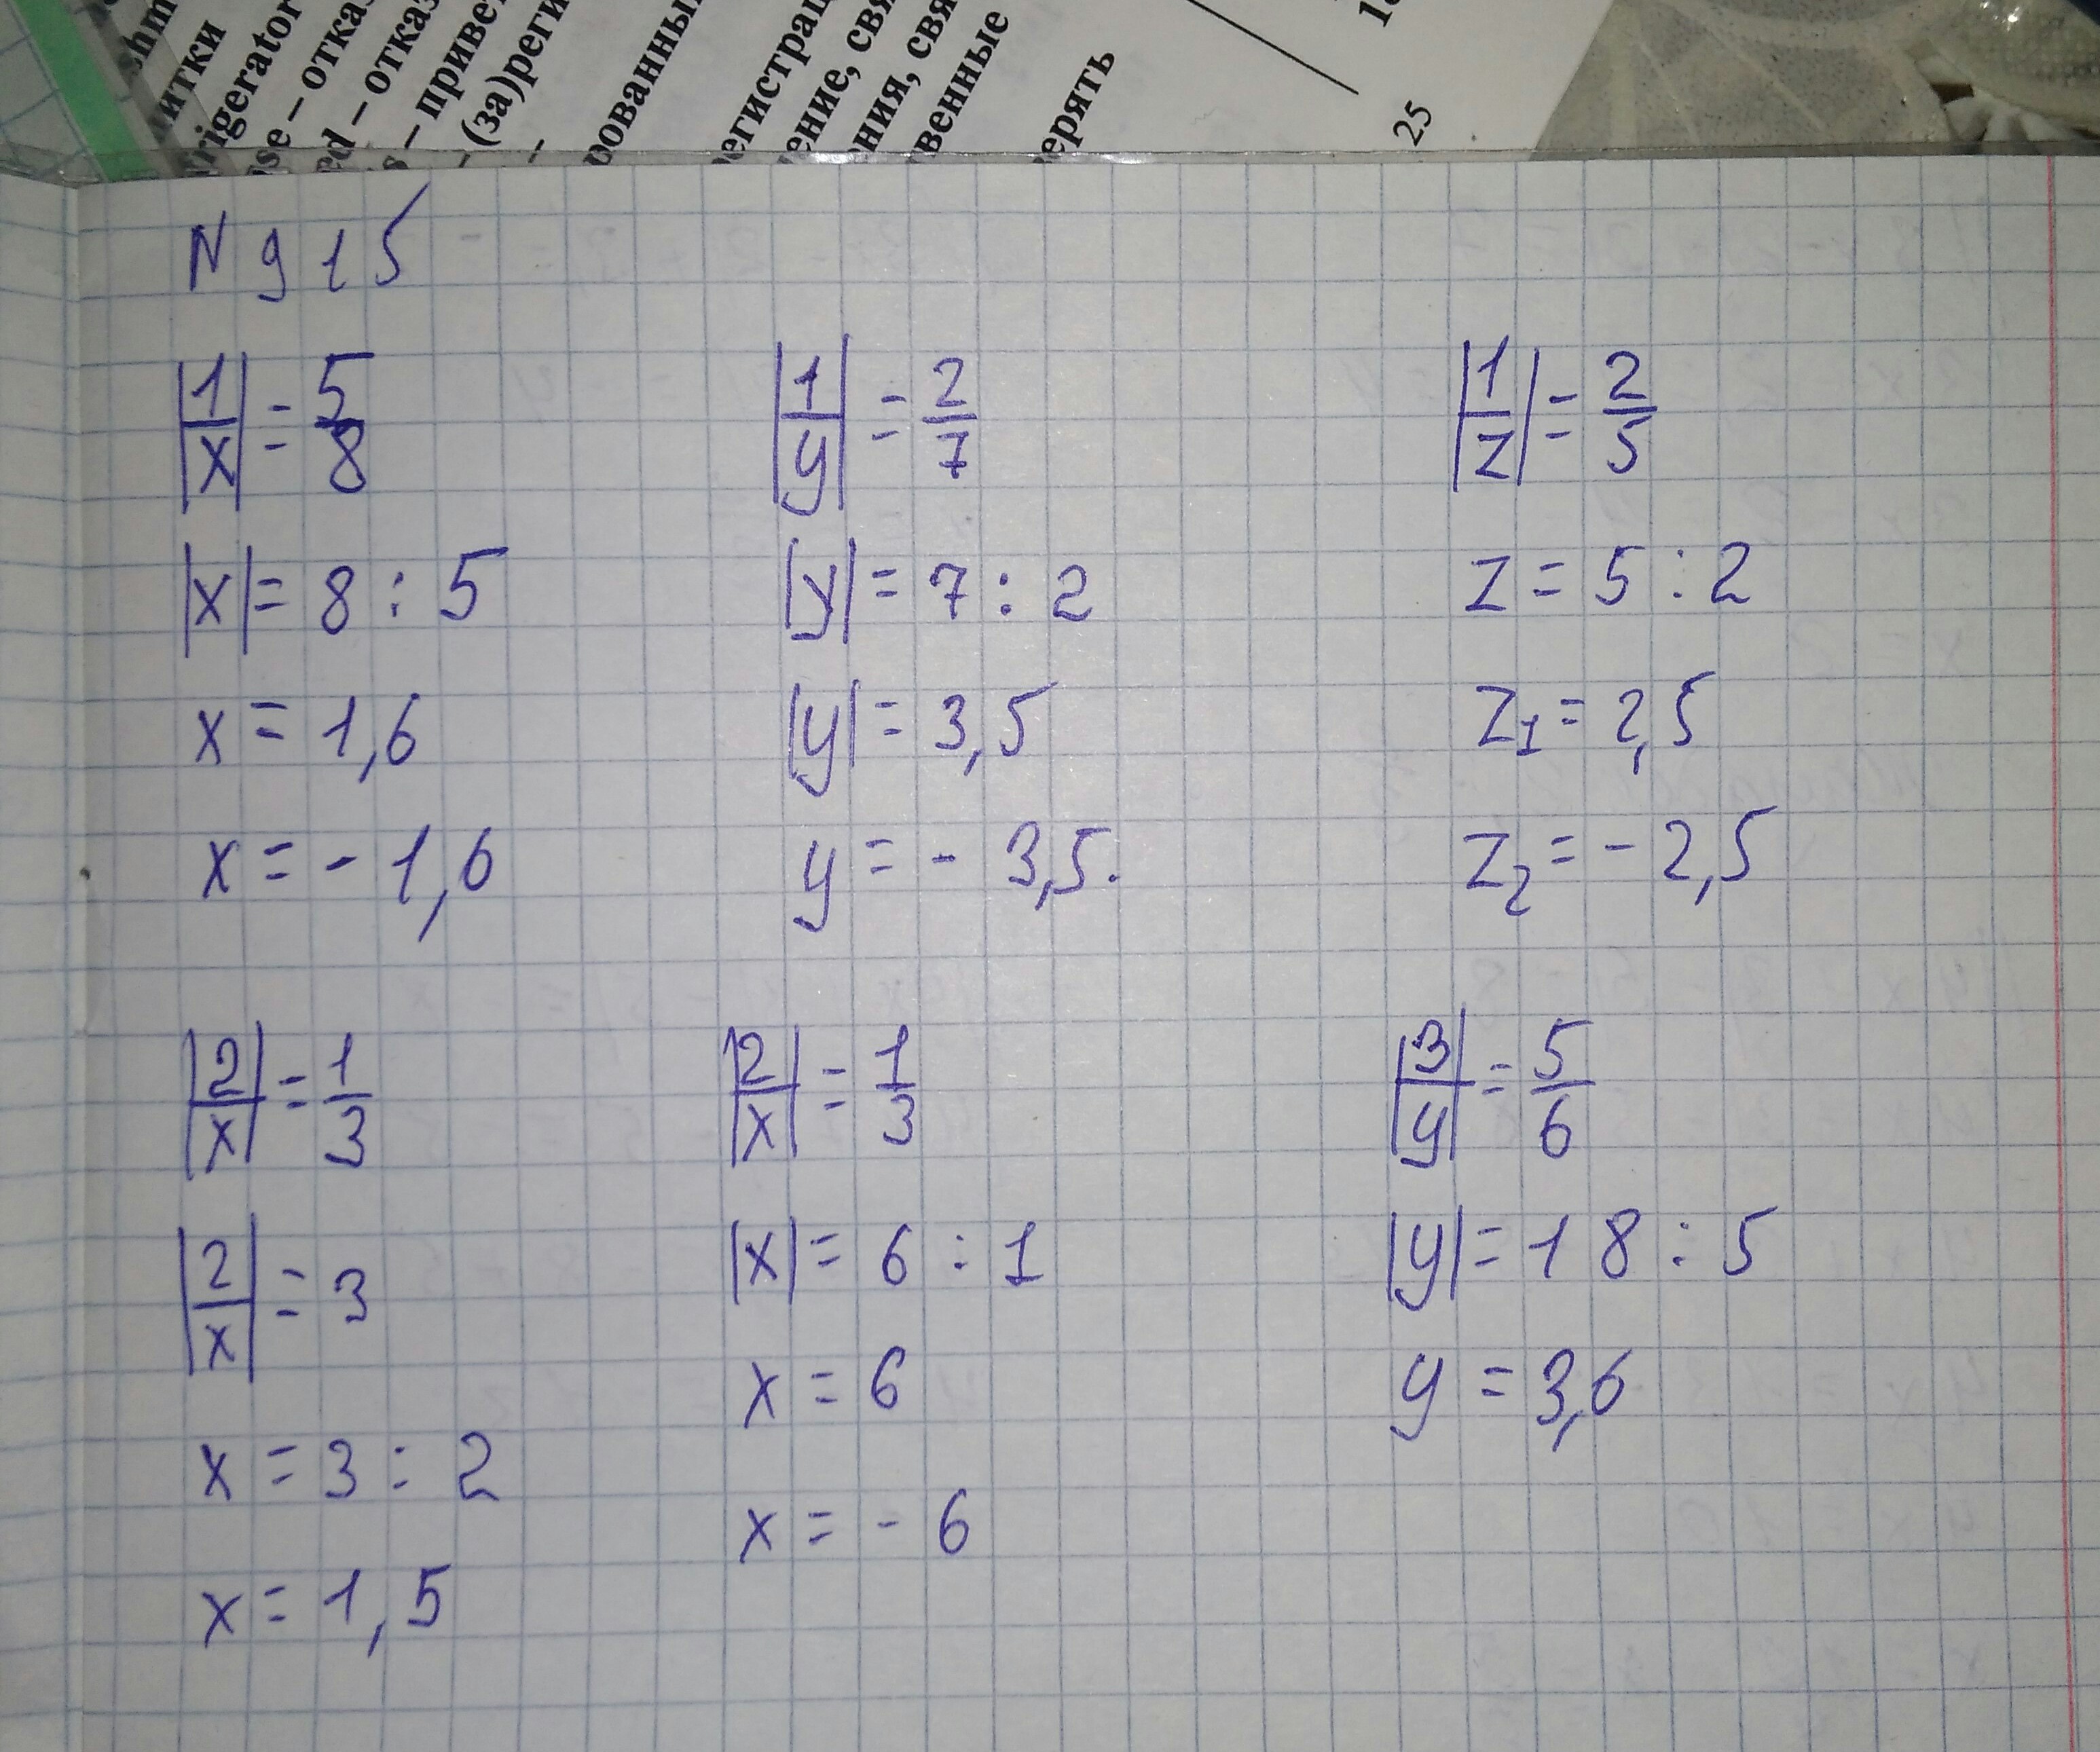 shm
итки
rigerator
ise – отказ
ed – отказ
s – приве
– (за)реги
–
рованны
регистрац
ение, свя
ния, свя
венные
ерять
25
N 915
|1/x| = 5/8
|x| = 8 : 5
x = 1,6
x = - 1,6
|1/y| = 2/7
|y| = 7 : 2
|y| = 3,5
y = - 3,5.
|1/z| = 2/5
z = 5 : 2
z1 = 2,5
z2 = - 2,5
|2/x| = 1/3
|2/x| = 3
x = 3 : 2
x = 1,5
|2/x| = 1/3
|x| = 6 : 1
x = 6
x = - 6
|3/y| = 5/6
|y| = 18 : 5
y = 3,6